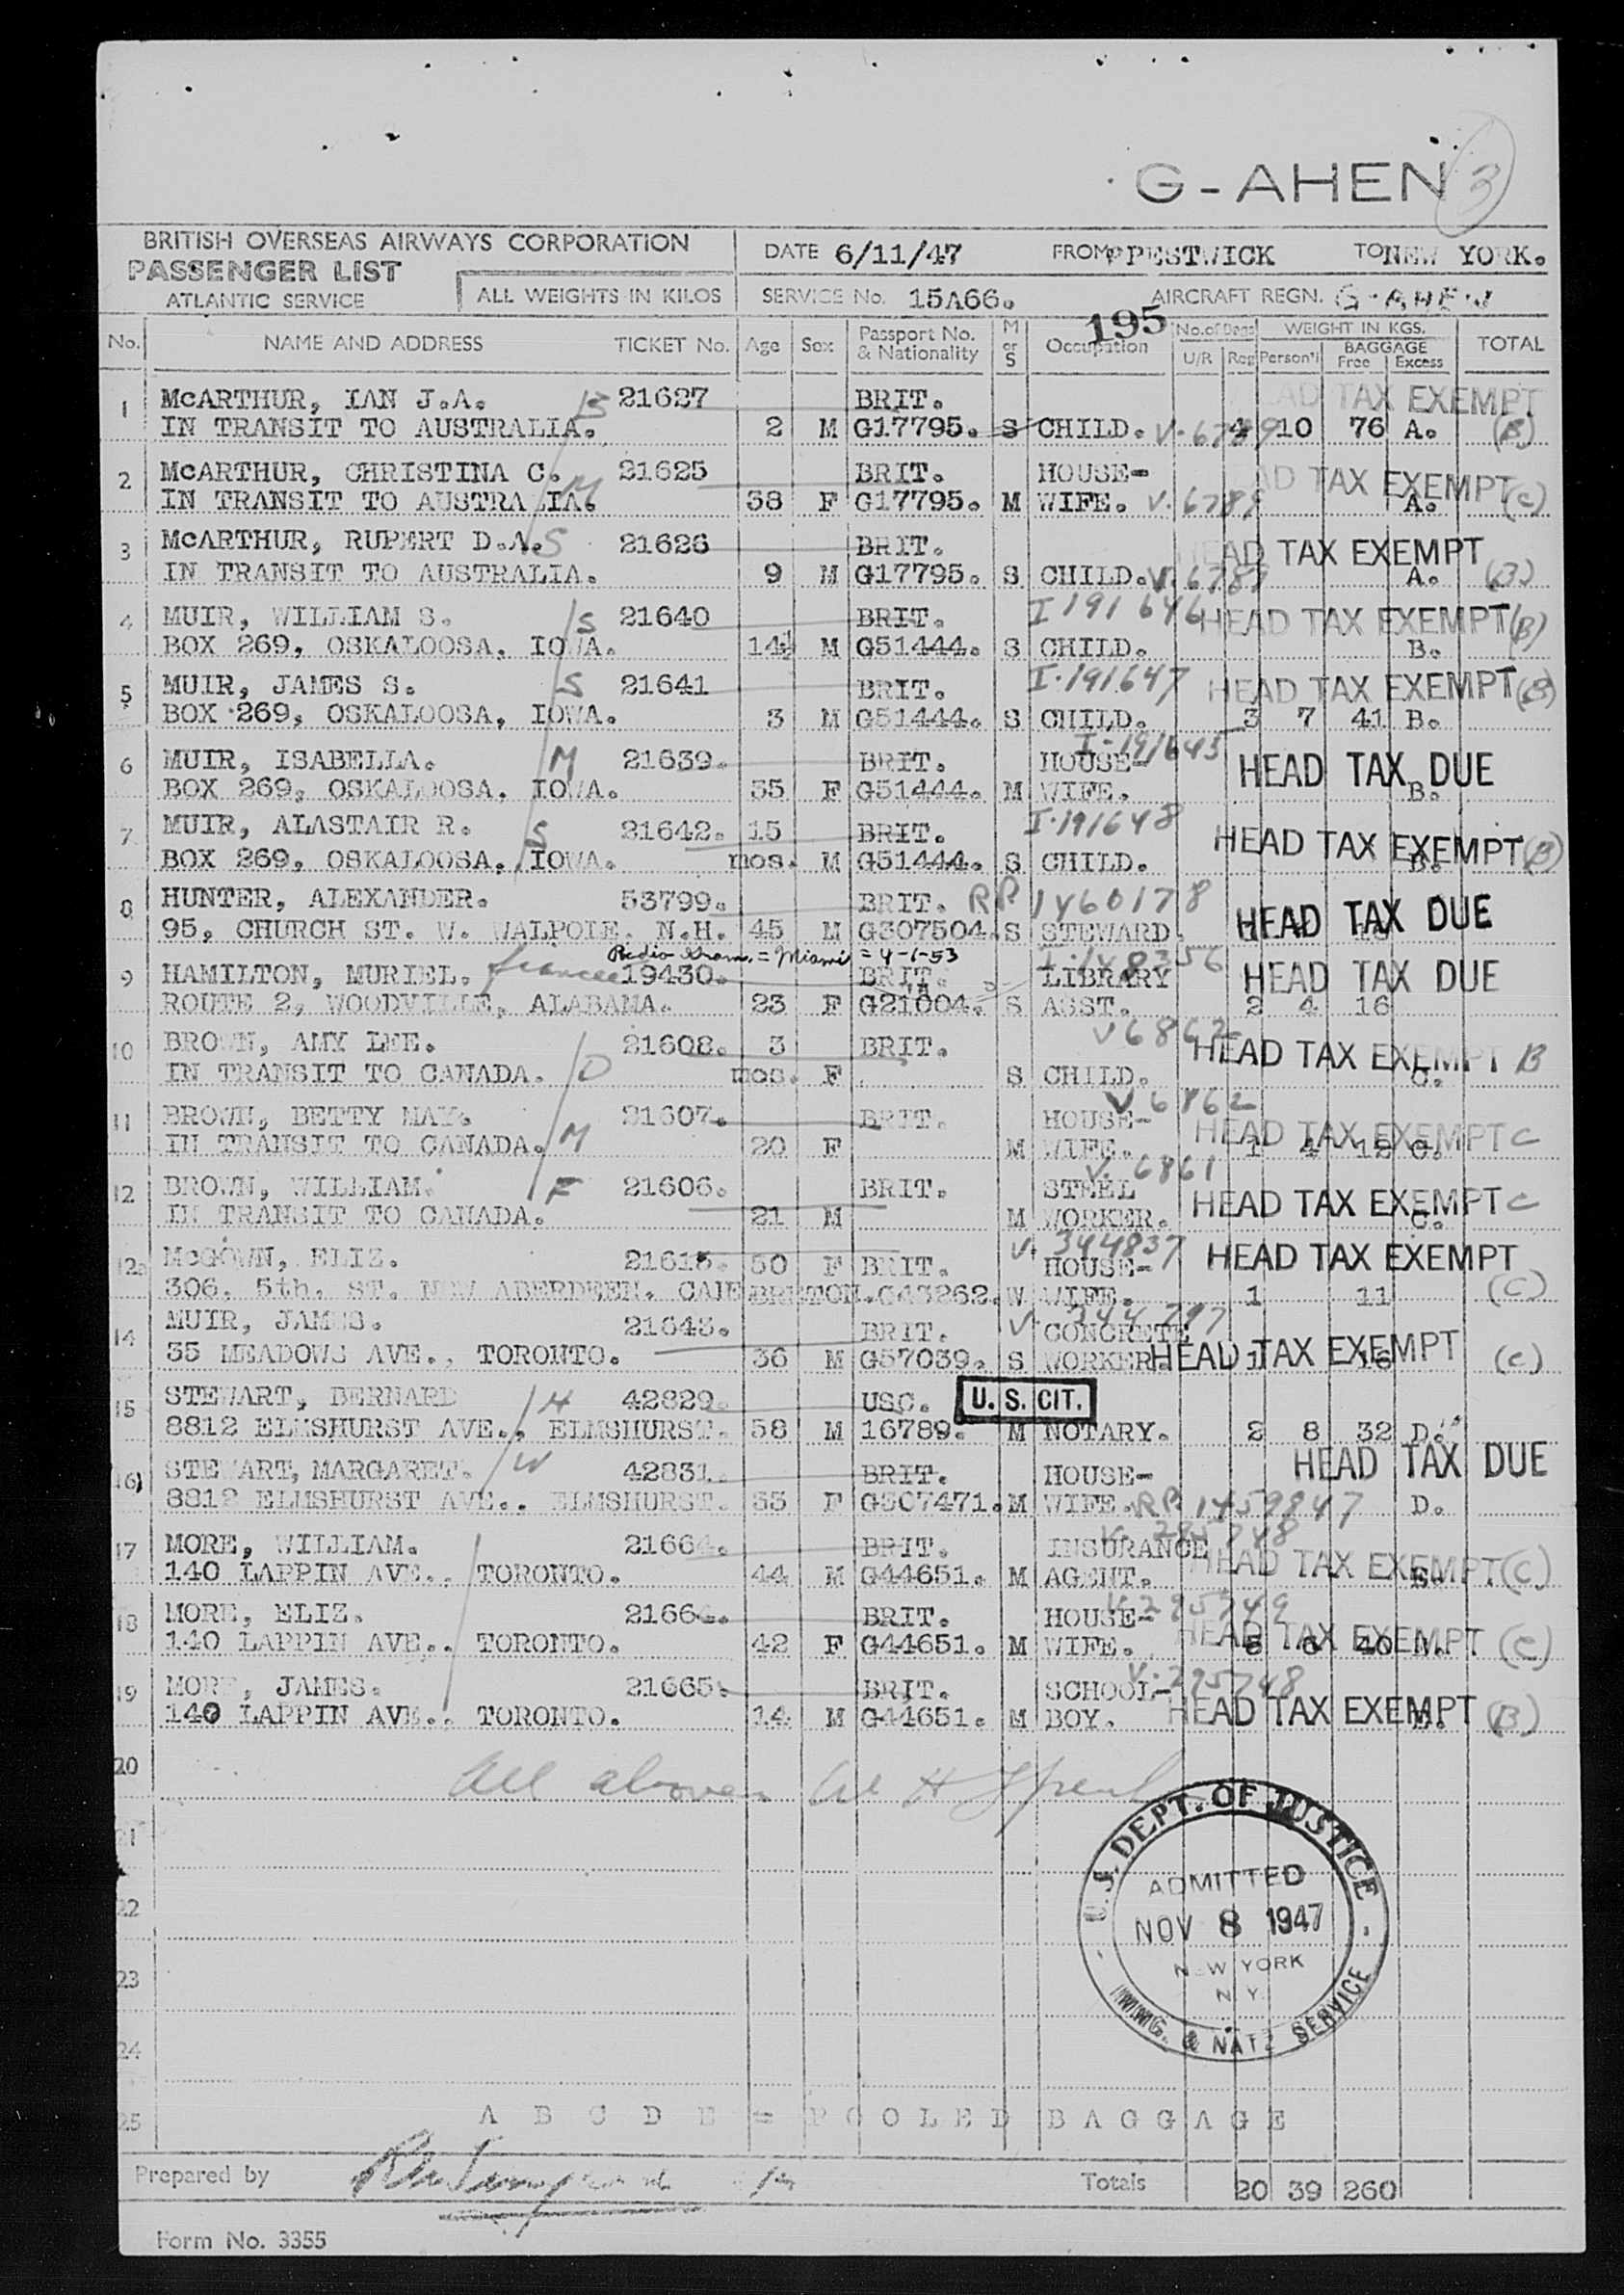 G-AHEN 3
BRITISH OVERSEAS AIRWAYS CORPORATION
PASSENGER LIST
ATLANTIC SERVICE
ALL WEIGHTS IN KILOS
DATE 6/11/47 FROM PRESTWICK TO NEW YORK.
SERVICE No. 15A66. AIRCRAFT REGN. G-AHEN
195
No. NAME AND ADDRESS TICKET No. Age Sex Passport No. & Nationality M or S Occupation No. of Bags U/R Reg WEIGHT IN KGS. Person'l BAGGAGE Free Excess TOTAL
1 McARTHUR, IAN J.A. B 21627 BRIT. HEAD TAX EXEMPT
IN TRANSIT TO AUSTRALIA. 2 M G17795. S CHILD. V.6789 4 10 76 A. (B)
2 McARTHUR, CHRISTINA C. M 21625 BRIT. HOUSE- HEAD TAX EXEMPT (C)
IN TRANSIT TO AUSTRALIA. 38 F G17795. M WIFE. V.6789 A.
3 McARTHUR, RUPERT D.A. S 21626 BRIT. HEAD TAX EXEMPT
IN TRANSIT TO AUSTRALIA. 9 M G17795. S CHILD. V.6789 A. (B)
4 MUIR, WILLIAM S. S 21640 BRIT. I 191646 HEAD TAX EXEMPT (B)
BOX 269, OSKALOOSA, IOWA. M G51444. S CHILD. B.
5 MUIR, JAMES S. S 21641 BRIT. I-191647 HEAD TAX EXEMPT (B)
BOX 269, OSKALOOSA, IOWA. 3 M G51444. S CHILD. 3 7 41 B.
6 MUIR, ISABELLA. M 21639. BRIT. HOUSE- I-191645 HEAD TAX DUE
BOX 269, OSKALOOSA, IOWA. 35 F G51444. M WIFE. B.
7 MUIR, ALASTAIR R. S 21642. 15 BRIT. I-191648 HEAD TAX EXEMPT (B)
BOX 269, OSKALOOSA, IOWA. mos. M G51444. S CHILD. B.
8 HUNTER, ALEXANDER. 53799. BRIT. RP 1460178 HEAD TAX DUE
95, CHURCH ST. W. WALPOLE. N.H. 45 M G307504. S STEWARD.
Radio Gram. = Miami = 4-1-53
9 HAMILTON, MURIEL. fiancee 19430. BRIT. LIBRARY I-148356 HEAD TAX DUE
ROUTE 2, WOODVILLE, ALABAMA. 23 F G21004. S ASST. 2 4 16
10 BROWN, AMY LEE. 21608. 3 BRIT. V6862 HEAD TAX EXEMPT B
IN TRANSIT TO CANADA. D mos. F S CHILD. C.
11 BROWN, BETTY MAY. 21607. BRIT. HOUSE- V6862 HEAD TAX EXEMPT C
IN TRANSIT TO CANADA. M 20 F M WIFE. 1 4 12 C.
12 BROWN, WILLIAM. F 21606. BRIT. STEEL V.6861 HEAD TAX EXEMPT C
IN TRANSIT TO CANADA. 21 M M WORKER. C.
12a McGOWN, ELIZ. 21615. 50 F BRIT. HOUSE- V.344837 HEAD TAX EXEMPT
306, 5th. ST. NEW ABERDEEN. CAPE BRETON. G43262. W WIFE. 1 11 (C)
14 MUIR, JAMES. 21643. BRIT. CONCRETE V.344797 HEAD TAX EXEMPT
35 MEADOWS AVE., TORONTO. 36 M G57039. S WORKER. 1 16 (C)
15 STEWART, BERNARD H 42829. USC. U.S. CIT.
8812 ELMSHURST AVE., ELMSHURST. 58 M 16789. M NOTARY. 2 8 32 D.
16 STEWART, MARGARET. W 42831. BRIT. HOUSE- HEAD TAX DUE
8812 ELMSHURST AVE., ELMSHURST. 53 F G307471. M WIFE. RP 1459847 D.
17 MORE, WILLIAM. BRIT. INSURANCE HEAD TAX EXEMPT (C)
140 LAPPIN AVE., TORONTO. 44 M G44651. M AGENT.
18 MORE, ELIZ. BRIT. HOUSE- V.295749 HEAD TAX EXEMPT (C)
140 LAPPIN AVE., TORONTO. 42 F G44651. M WIFE. 5 6 40
19 MORE, JAMES. 21665. BRIT. SCHOOL- V.295748 HEAD TAX EXEMPT (B)
140 LAPPIN AVE., TORONTO. 14 M G44651. M BOY.
20 All above W H
21
22
23
24
25 A B C D E = POOLED BAGGAGE
U.S. DEPT. OF JUSTICE
ADMITTED
NOV 8 1947
NEW YORK
N.Y.
IMMIG. & NATZ SERVICE
Prepared by Totals 20 39 260
Form No. 3355